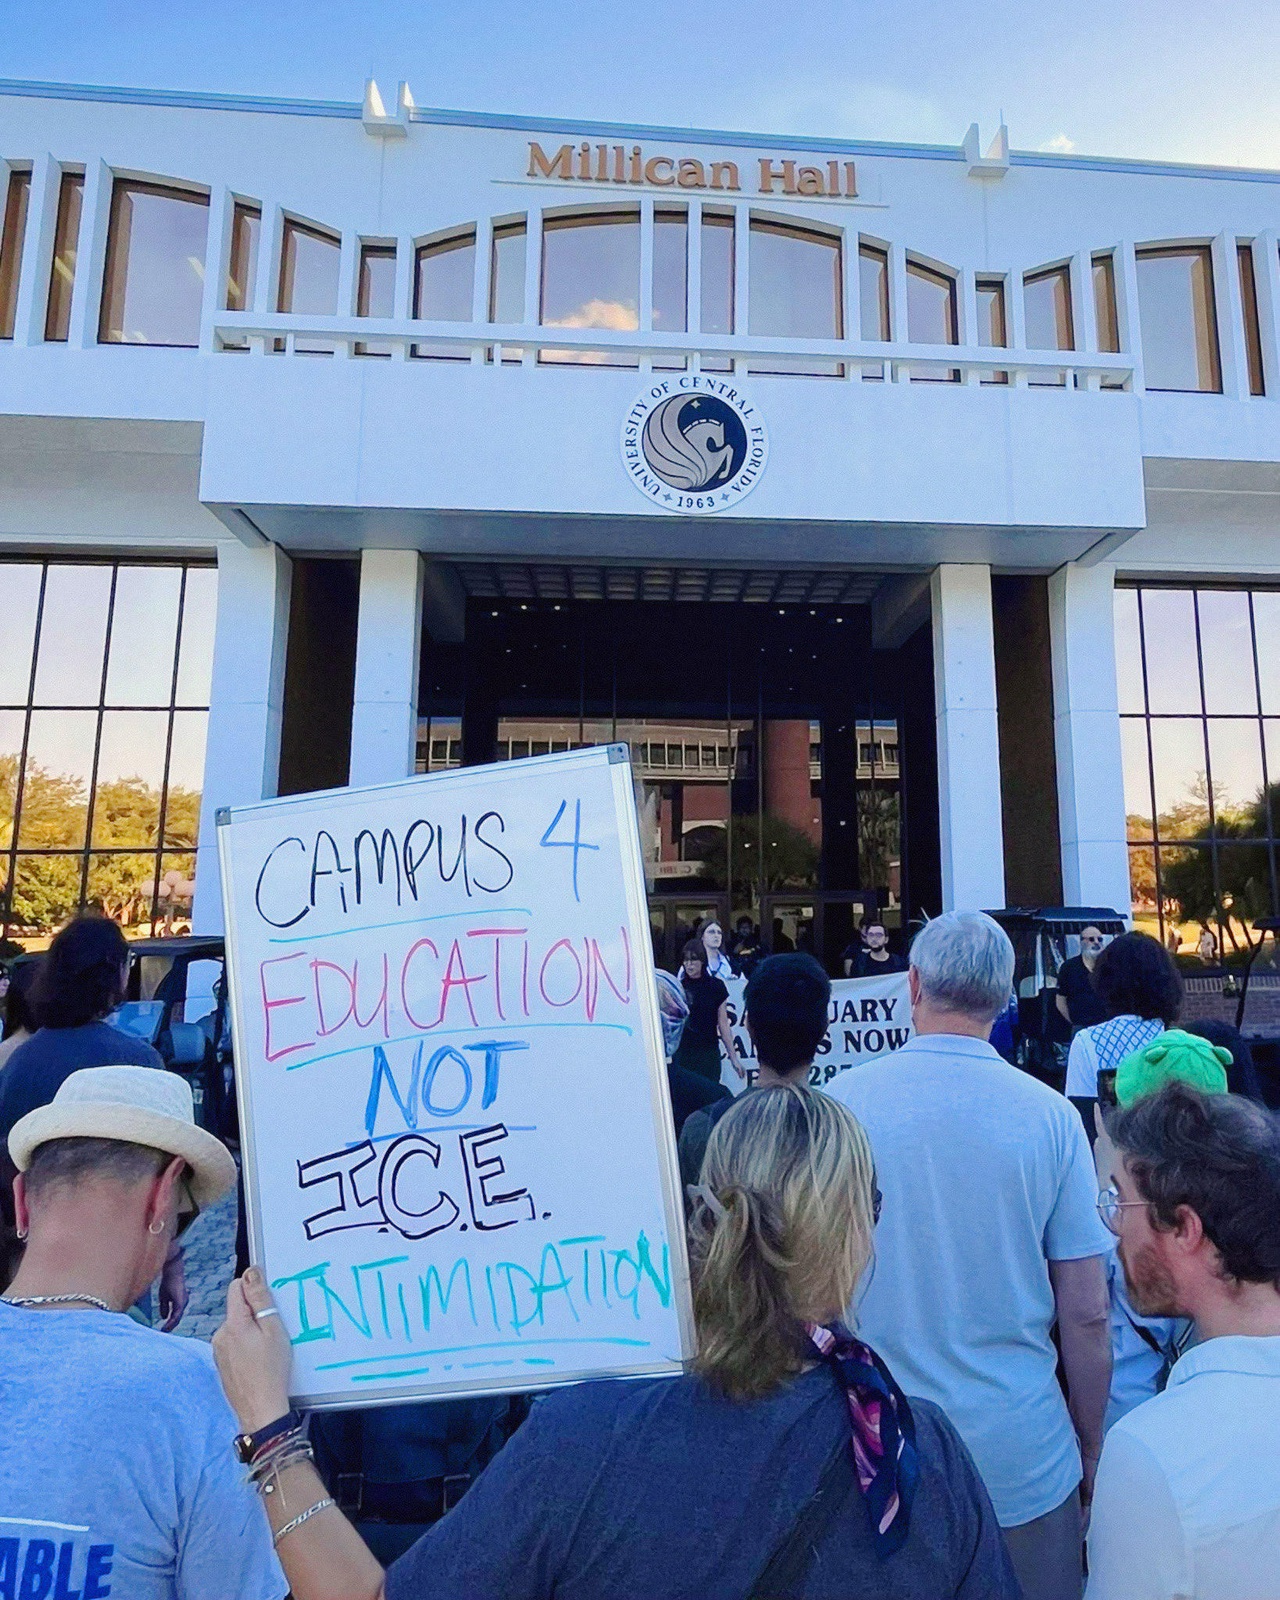 Millican Hall
UNIVERSITY OF CENTRAL FLORIDA
1963
CAMPUS 4
EDUCATION
NOT
I.C.E.
INTIMIDATION
NOW